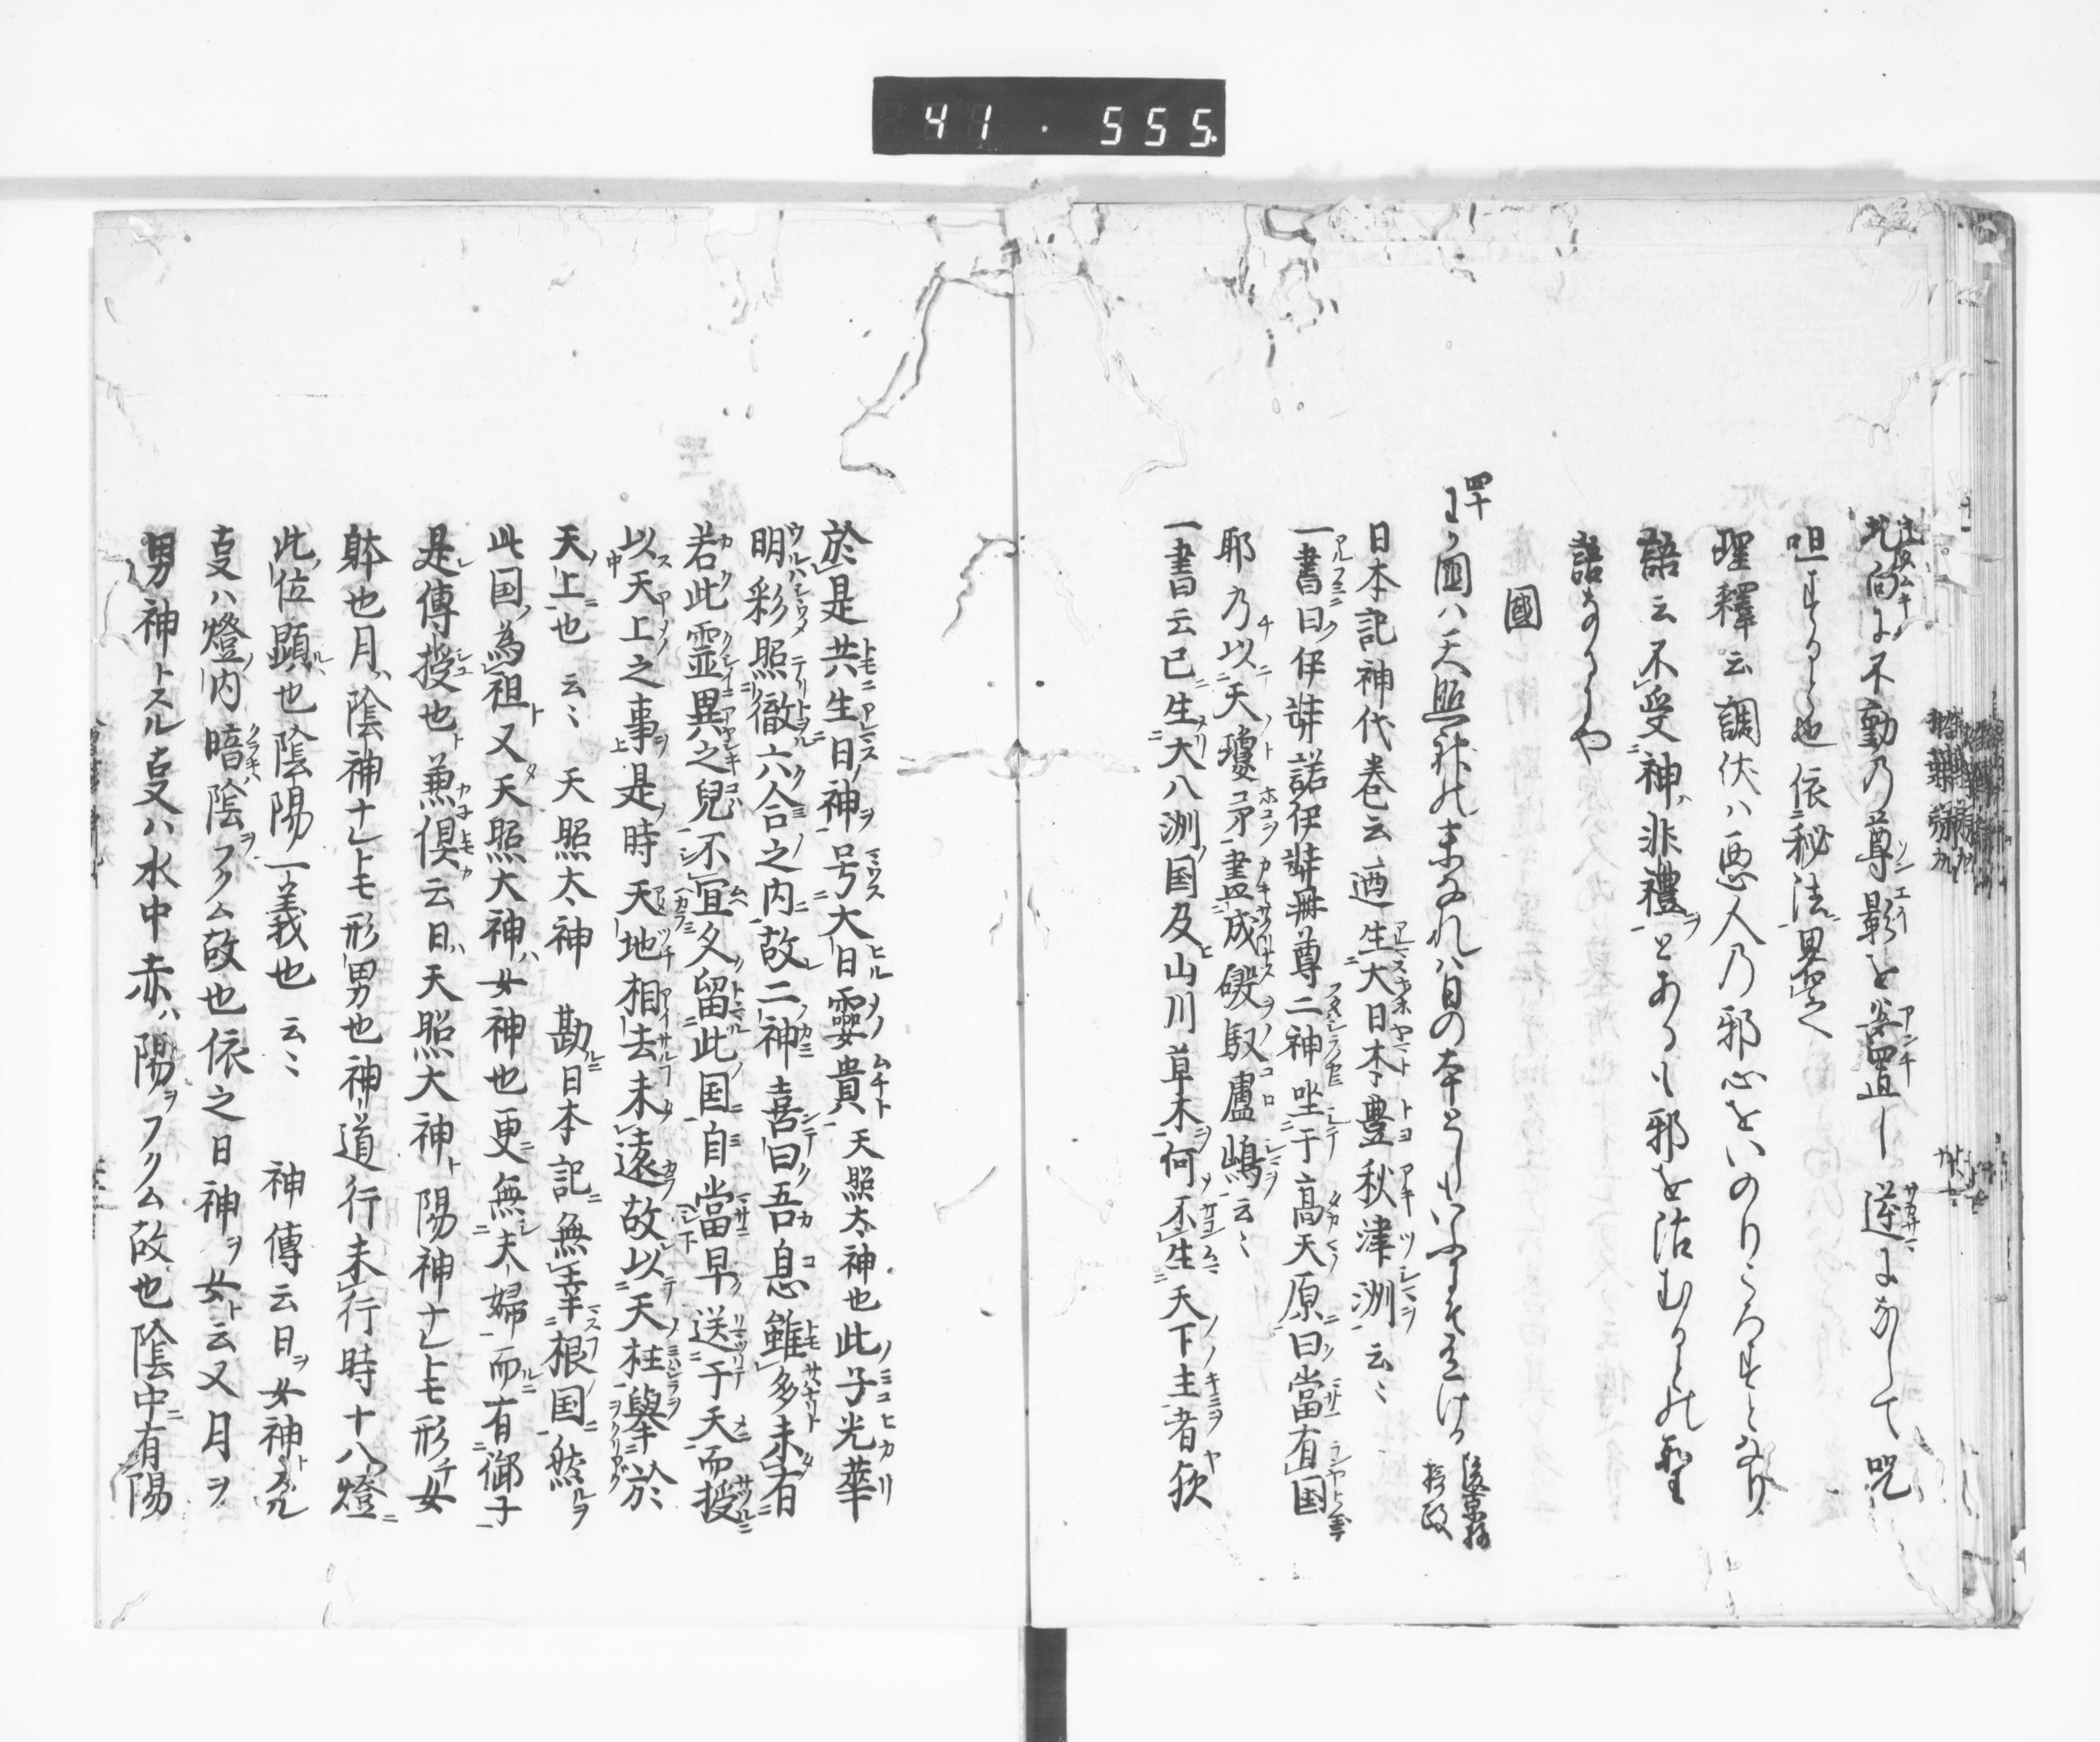 41.555.
此向に不動乃尊影を安置し逆になして呪
咀するは也依秘法畧之
聖釋云調伏ハ悪人乃邪心をいのりころすとなり
語云不受神非禮とあるも邪を沽むるの聖
語なるをや
國
四十
わか國ハ天照神の末なれハ日の本としもいふにそ有ける 後京極摂政
日本記神代巻云廼生大日本豊秋津洲云〻
一書曰伊弉諾伊弉冊尊二神坐于高天原曰當有国
耶乃以天瓊矛畫成磤馭盧嶋云〻
一書云已生大八洲国及山川草木何不生天下主者欤
於是共生日神号大日孁貴天照太神也此子光華
明彩照徹六合之内故二神喜曰吾息雖多未有
若此霊異之兒不宜久留此国自當早送于天而授
以天上之事是時天地相去未遠故以天柱擧於
天上也云〻 天照太神 勘日本記無幸根国然
此国為祖又天照大神女神也更無夫婦而有御子
是傳授也兼倶云日天照大神陽神ナレトモ形チ女
躰也月陰神ナレトモ形男也神道行未行時十八燈
此位顕也陰陽一義也云〻 神傳云日ヲ女神ト
支ハ燈内暗陰ヲフクム故也依之日神ヲ女ト云又月ヲ
男神トスル支ハ水中赤ハ陽ヲフクム故也陰中有陽